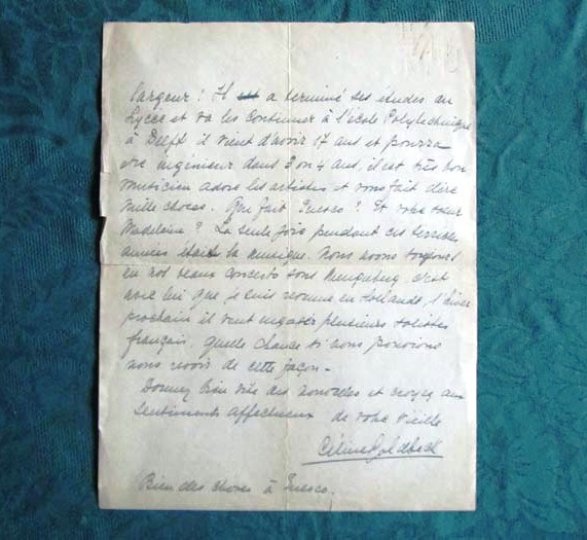 largeur! Il a terminé ses études au
Lycée et va les continuer à l'école Polytechnique
à Delft il vient d'avoir 17 ans et pourra
être ingénieur dans 3 ou 4 ans, il est très bon
musicien adore les artistes et vous fait dire
mille choses. Que fait Enesco? Et votre sœur
Madeleine? La seule joie pendant ces terribles
années était la musique. Nous avons toujours
eu nos beaux concerts sous Mengelberg, c'est
avec lui que je suis en Hollande, l'hiver
prochain il veut engager plusieurs solistes
français, quelle chance si nous pouvions
nous revoir de cette façon -
Donnez bien vite des nouvelles et croyez aux
sentiments affectueux de votre vieille
Céline Goldbeck
Bien des choses à Enesco.